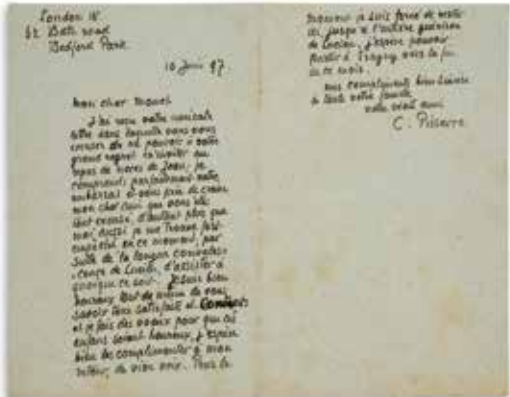 London W.
62 Bath road
Bedford Park
10 Juin 97.
mon cher monet
J'ai reçu votre amicale
lettre dans laquelle vous vous
excusez de ne pouvoir à votre
grand regret m'inviter au
repas de noces de Jean, je
comprends parfaitement votre
embarras et vous prie de croire
mon cher ami que vous êtes
tout excusé, d'autant plus que
moi aussi je me trouve
en ce moment, par
suite de la longue convales-
cence de Lucien, d'assister à
quoique ce soit. Je suis bien
heureux tout de même de vous
savoir tous satisfaits et
et je fais des vœux pour que ces
enfans soient heureux, j'espère
bien les complimenter à mon
retour, de vive voix. Pour le
moment je suis forcé de rester
ici jusqu'à l'entière guérison
de Lucien, j'espère pouvoir
partir à Eragny vers la fin
de ce mois.
nos compliments bien sincères
à toute votre famille
votre vieil ami
C. Pissarro